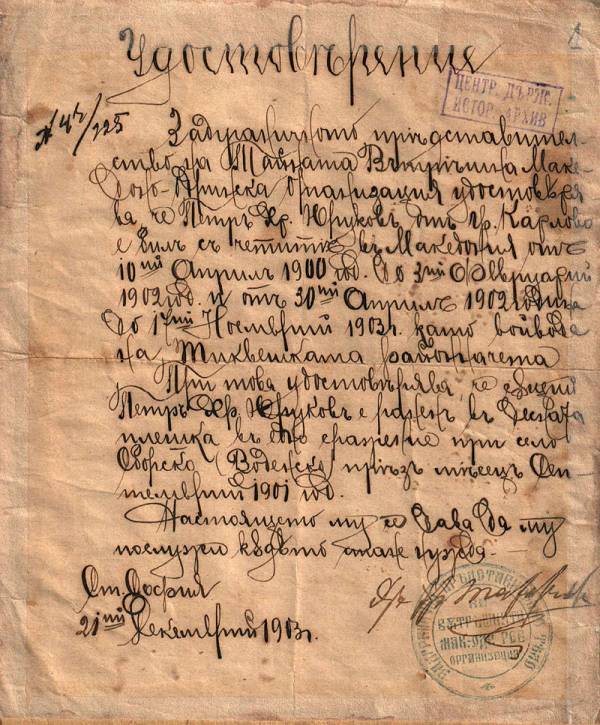 Удостовѣрение
1
ЦЕНТР. ДЪРЖ.
ИСТОР. АРХИВ
Задграничното прѣдставител-
ство на Тайната Вътрѣшна Маке-
доно-Одринска Организация удостовѣря-
ва че Петръ Хр. Юруковъ отъ гр. Карлово
е билъ съ четитѣ въ Македония отъ
10ий Априлъ 1900 год. до 3ий Февруарий
1902 год. и отъ 30ий Априлъ 1902 година
до 17ий Ноемврий 1903 г. като войвода
на Тиквешката район. чета
При това удостовѣрява че сѫщий
Петръ Хр. Юруковъ е раненъ въ дѣсната
плешка въ сражение при село
(Воденско) прѣзъ мѣсецъ Сеп-
темврий 1901 год.
Настоящето му се дава да му
послужи кѫдѣто стане нужда.-
Ст. София
21ий Декемврий 1903 г.
ВѪТРѢШНАТА
МАК.-ОДРИНСК
ОРГАНИЗАЦИЯ